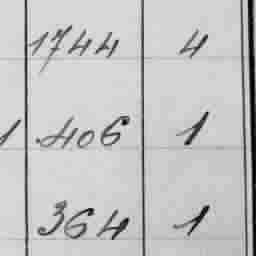 1744 4
1 406 1
364 1